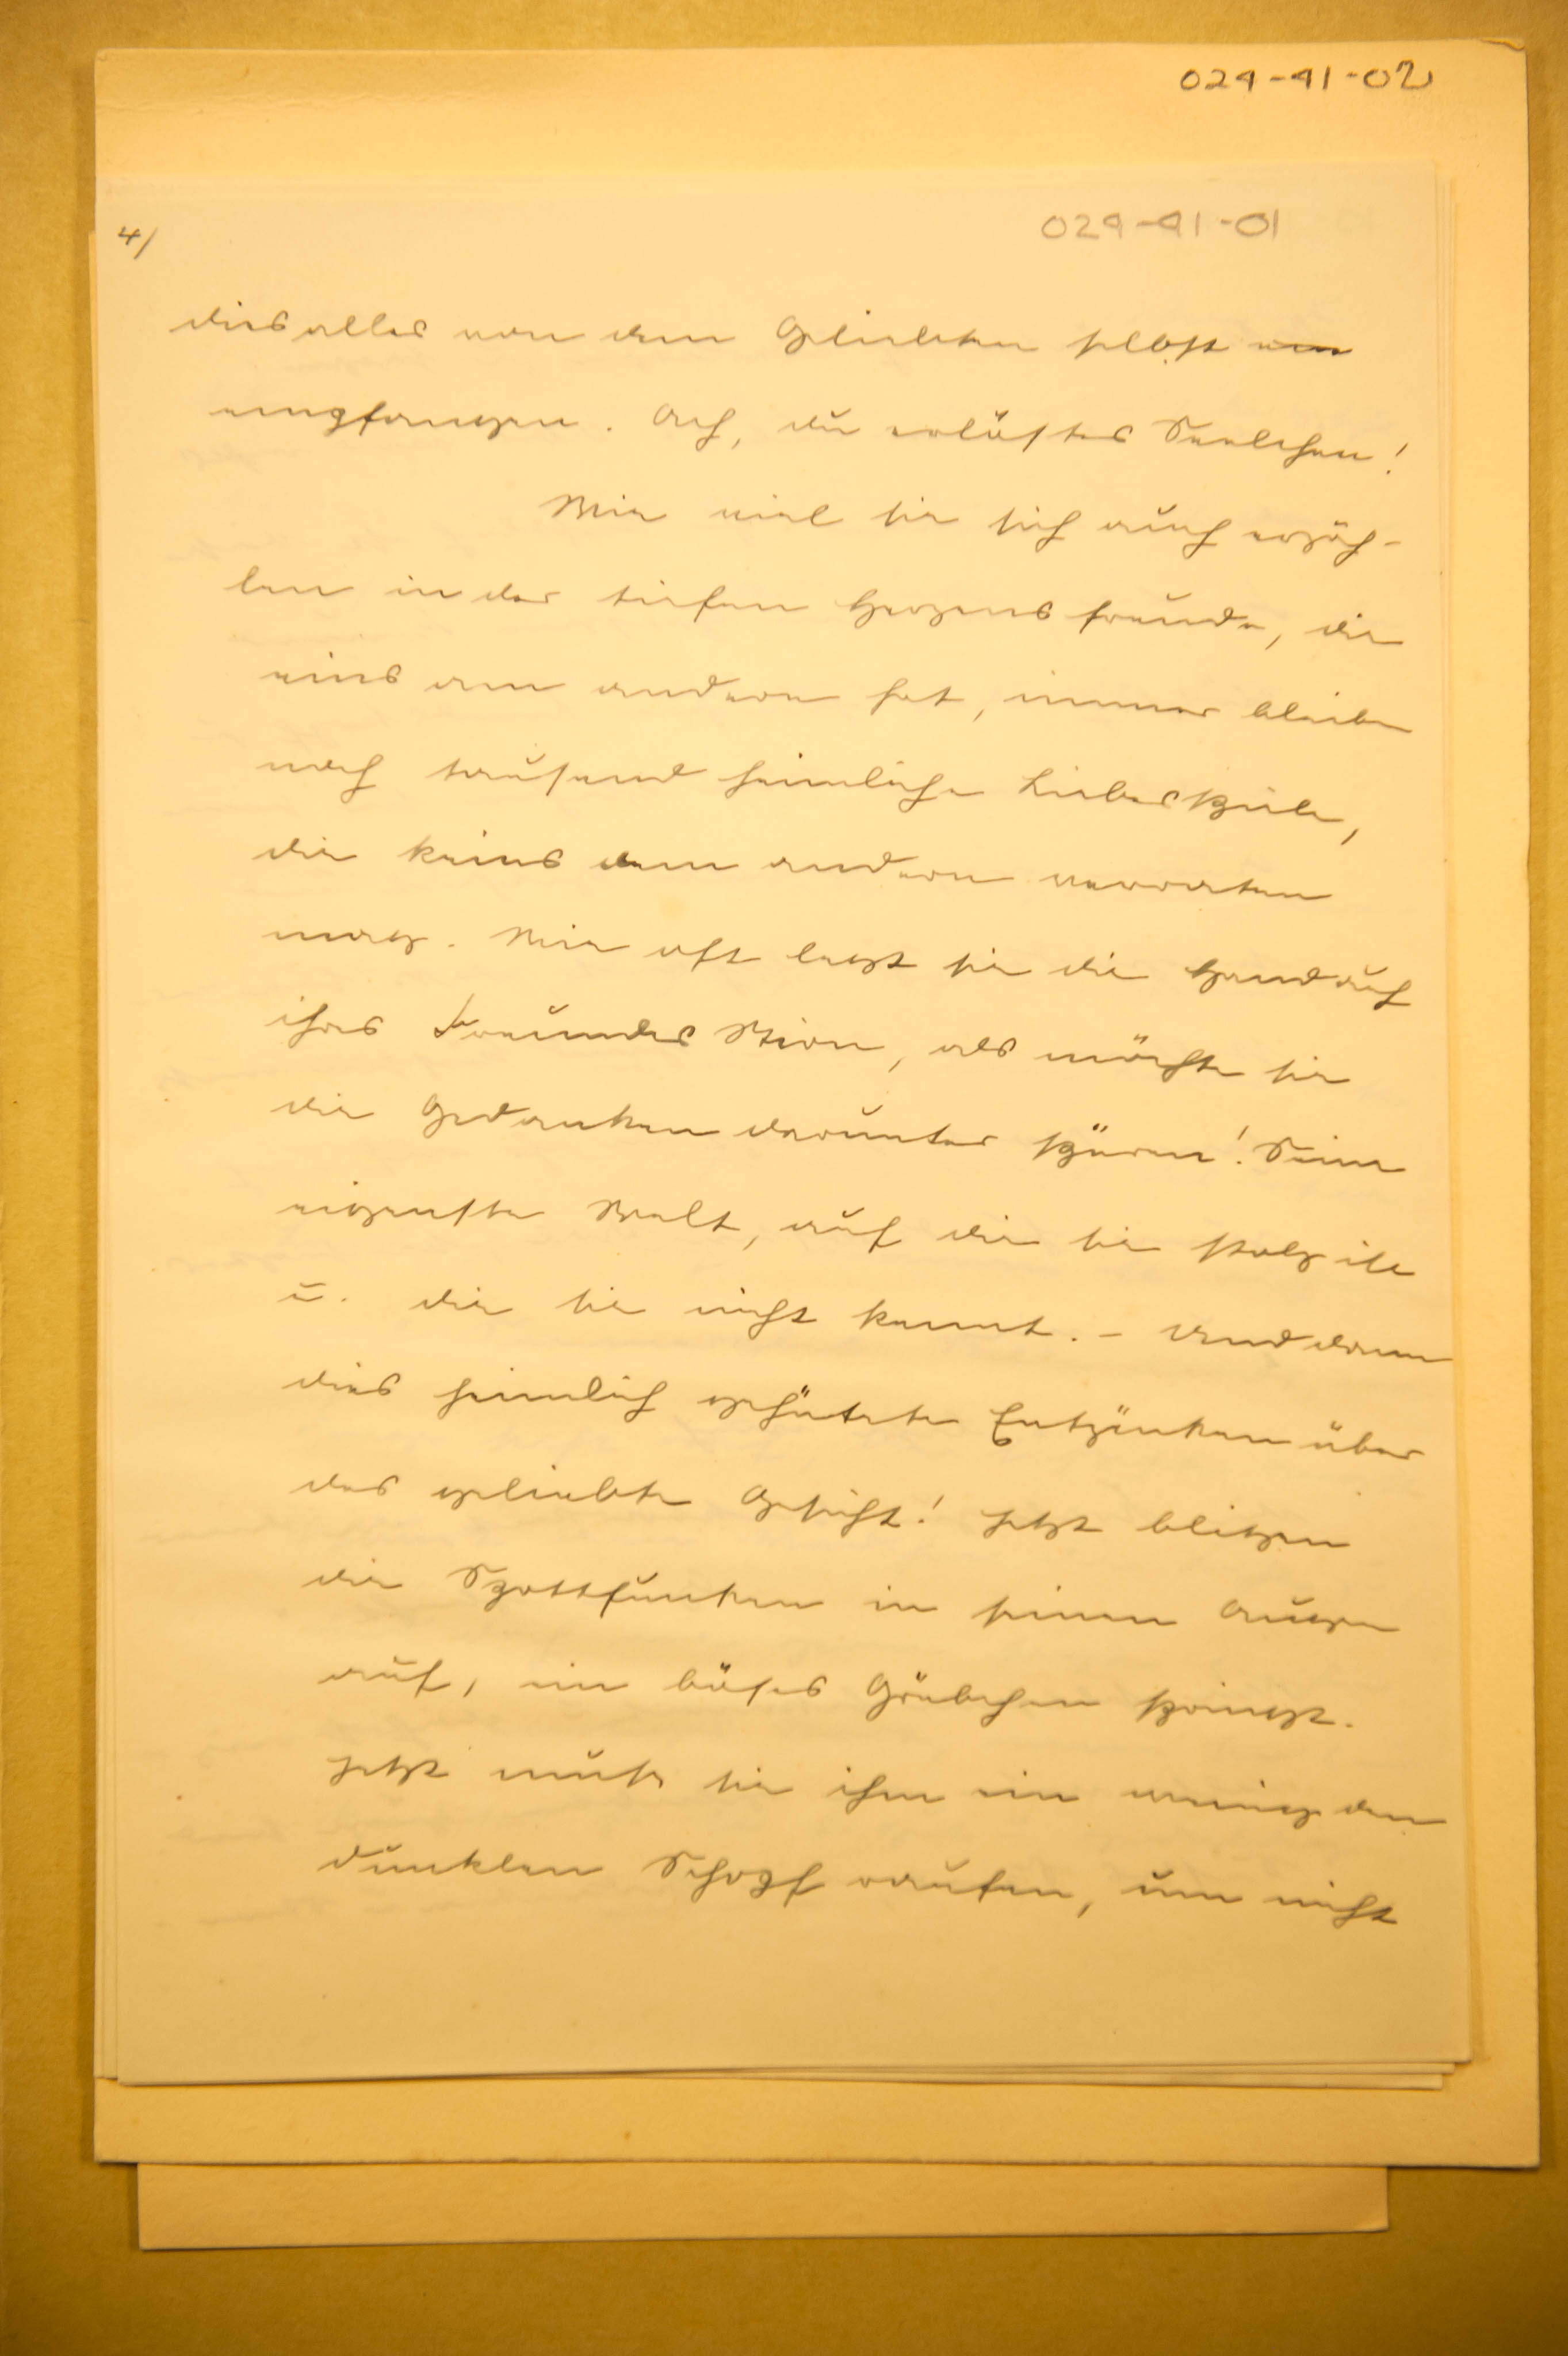 024-41-02
029-41-01
4/
dies alles von dem Geliebten selbst
empfangen. Ach, du erlöstes Seelchen!
Wie viel sie sich auch erzäh-
len in der tiefen Herzensfreude, die
eins am andern hat, immer bleiben
noch tausend heimliche Liebesspiele,
die keins dem andern verraten
mag. Wie oft legt sie die Hand auf
ihres Freundes Stirn, als möchte sie
die Gedanken darunter spüren! Seine
eigenste Welt, auf die sie stolz ist
u. die sie nicht kennt. – Und dann
dies heimlich gehütete Entzücken über
das geliebte Gesicht! Jetzt blitzen
die Spottfunken in seinen Augen
auf, ein böses Grübchen springt.
Jetzt muß sie ihm ein wenig den
dunklen Schopf raufen, um nicht